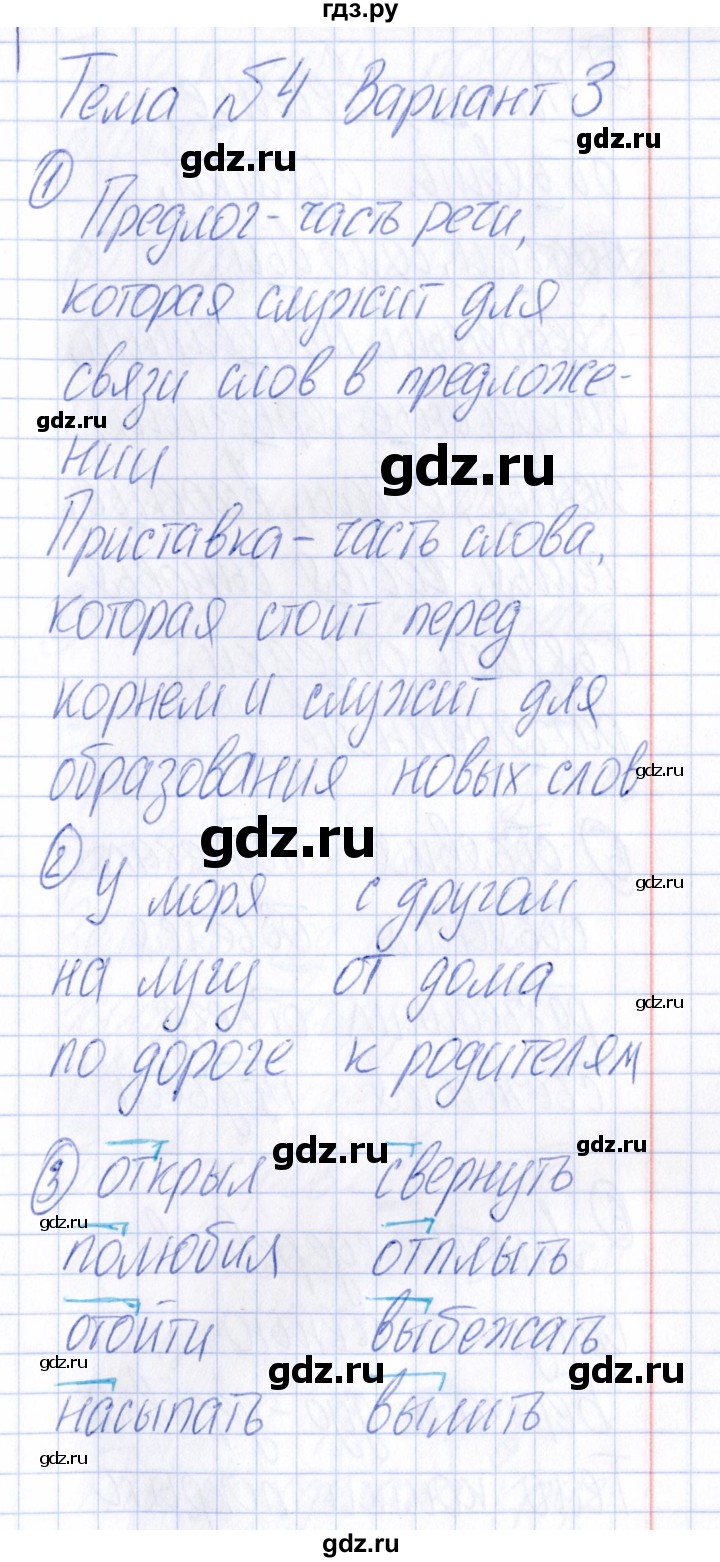 гдз.ру
Тема №4 Вариант 3
gdz.ru
gdz.ru
① Предлог - часть речи,
которая служит для
связи слов в предложе-
gdz.ru
нии
gdz.ru
Приставка - часть слова,
которая стоит перед
корнем и служит для
образования новых слов
gdz.ru
gdz.ru
② У моря с другом
gdz.ru
на лугу от дома
gdz.ru
по дороге к родителям
gdz.ru
gdz.ru
③ открыл свернуть
полюбил отплыть
отойти выбежать
gdz.ru
gdz.ru
gdz.ru
насыпать вылить
gdz.ru
gdz.ru